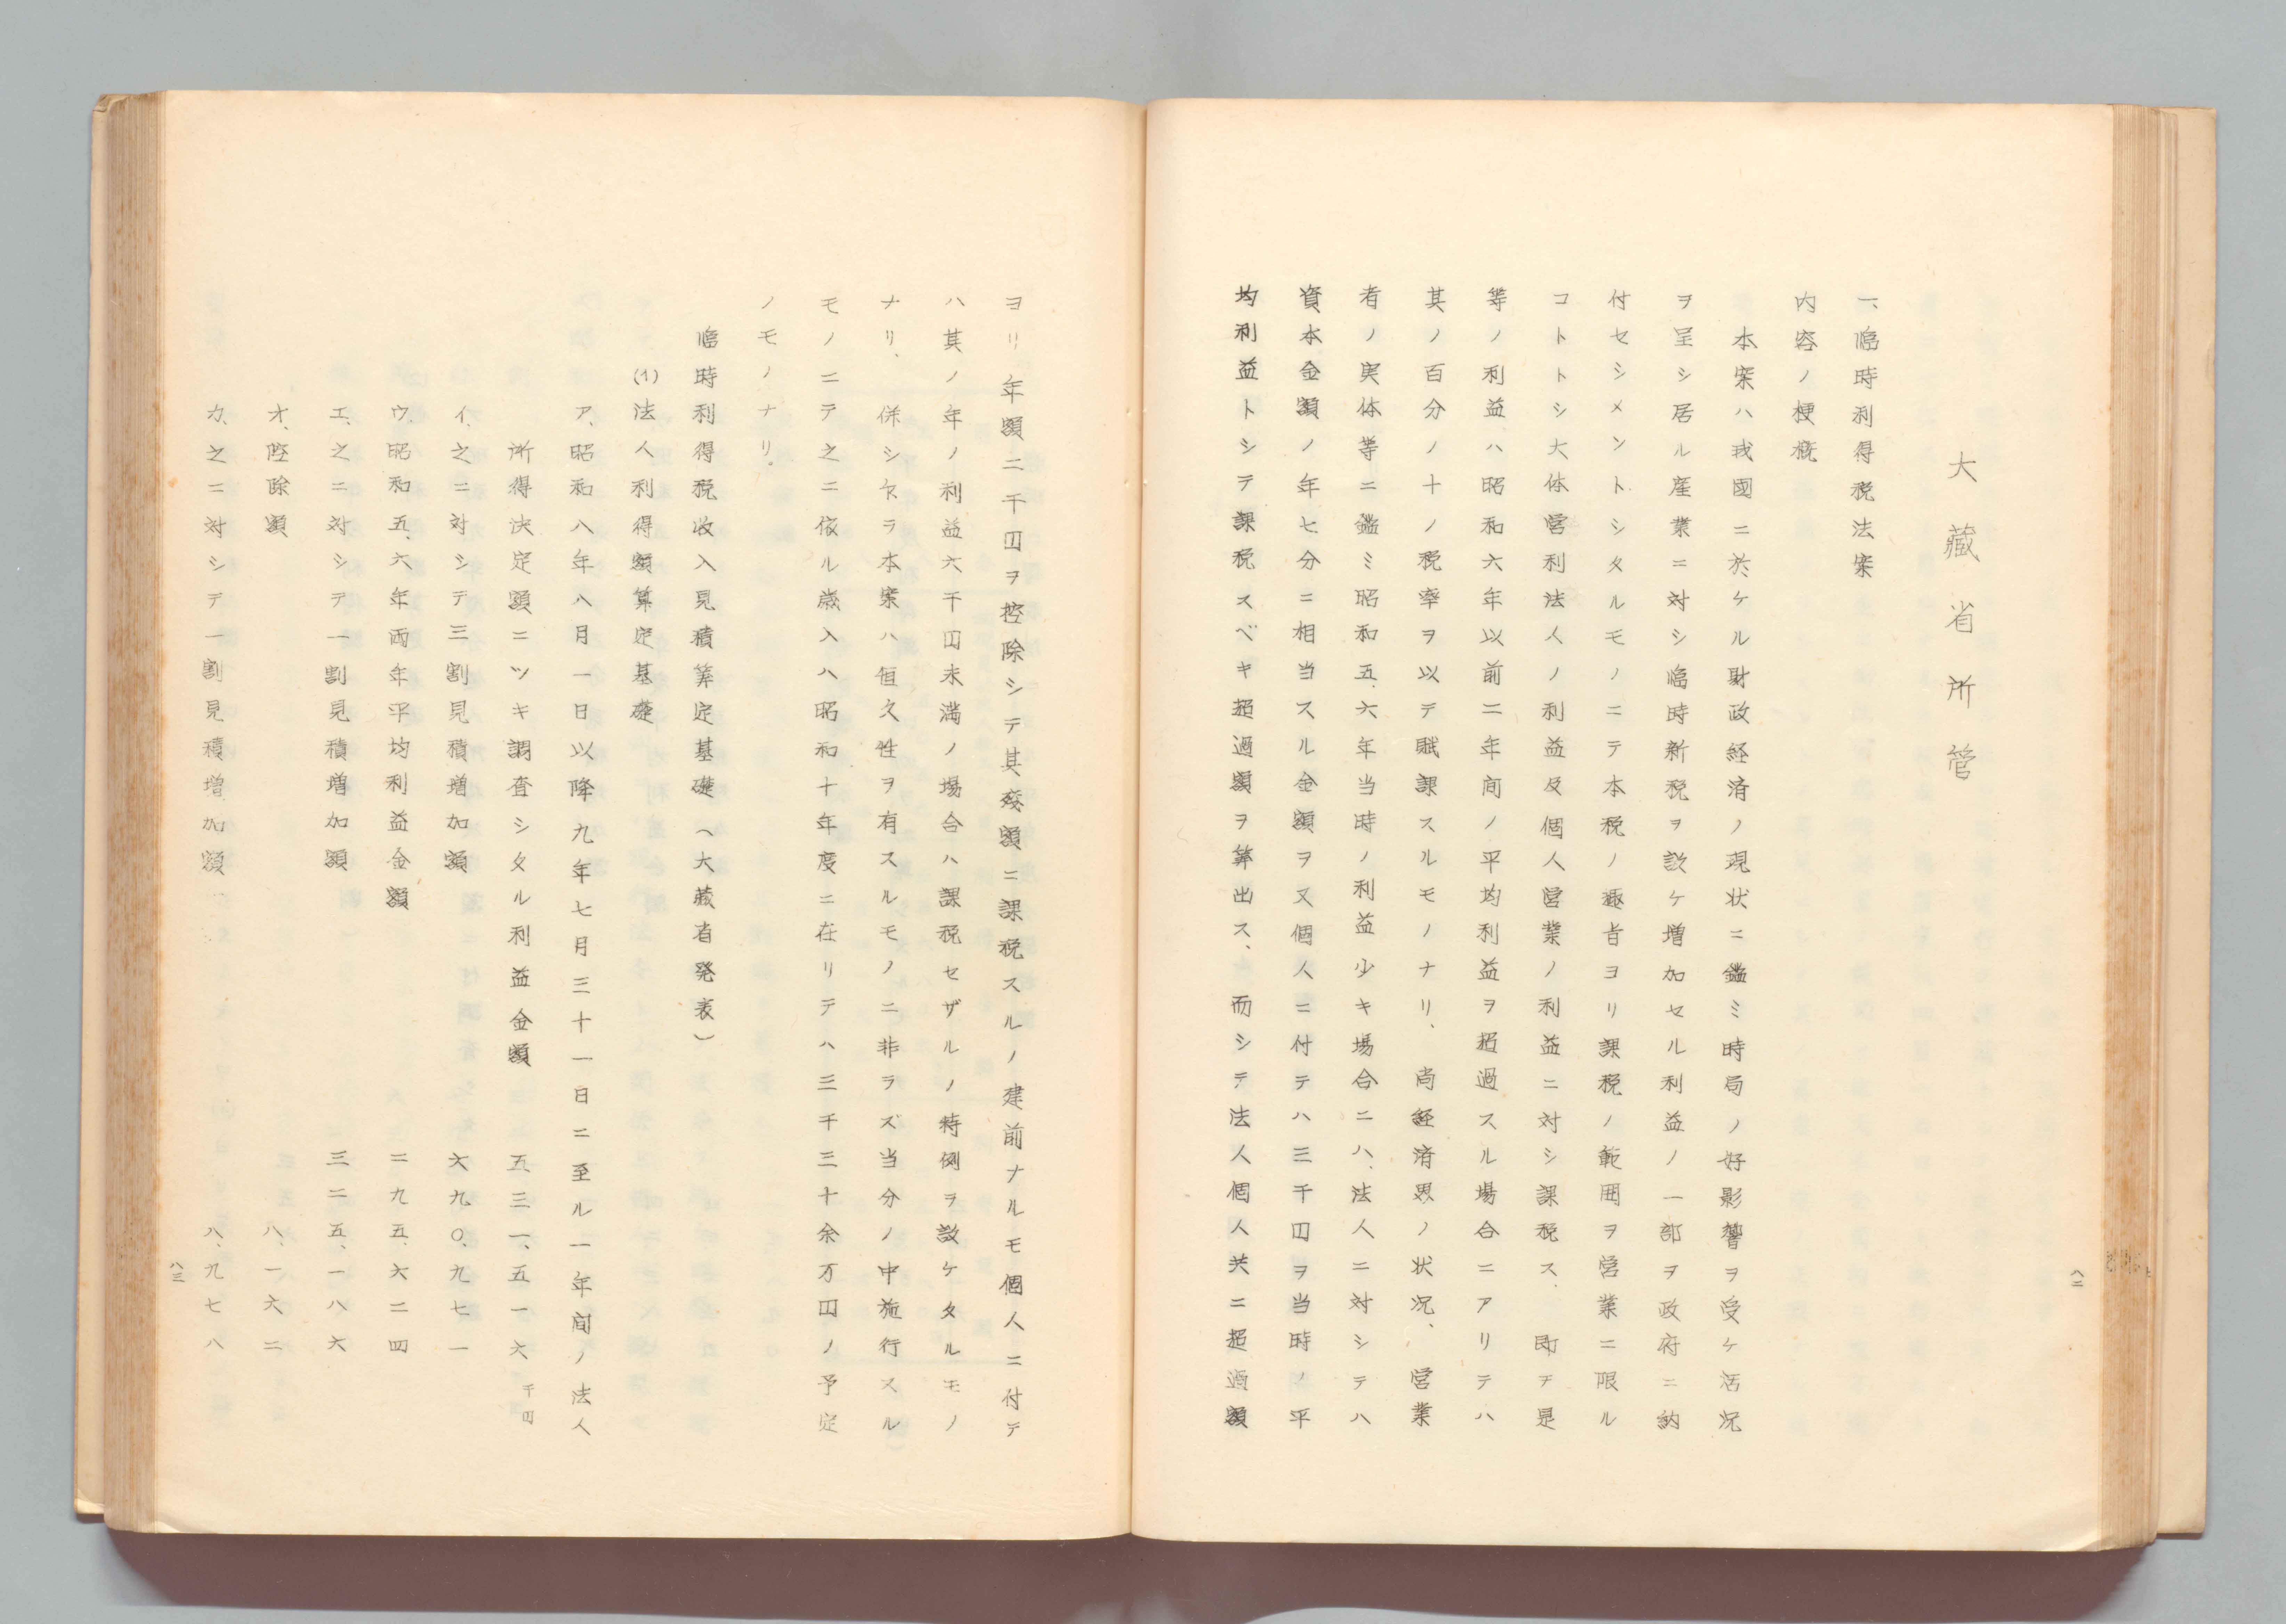 大藏省所管
一、臨時利得税法案
内容ノ梗概
本案ハ我國ニ於ケル財政経済ノ現状ニ鑑ミ時局ノ好影響ヲ受ケ活況
ヲ呈シ居ル産業ニ対シ臨時新税ヲ設ケ増加セル利益ノ一部ヲ政府ニ納
付セシメントシタルモノニテ本税ノ趣旨ヨリ課税ノ範囲ヲ営業ニ限ル
コトトシ大体営利法人ノ利益及個人営業ノ利益ニ対シ課税ス、即チ是
等ノ利益ハ昭和六年以前二年间ノ平均利益ヲ超過スル場合ニアリテハ
其ノ百分ノ十ノ税率ヲ以テ賦課スルモノナリ、尚経済界ノ状况、営業
者ノ実体等ニ鑑ミ昭和五、六年当時ノ利益少キ場合ニハ、法人ニ対シテハ
資本金額ノ年七分ニ相当スル金額ヲ又個人ニ付テハ三千円ヲ当時ノ平
均利益トシテ課税スベキ超過額ヲ算出ス、而シテ法人個人共ニ超過額
八二
ヨリ年額二千円ヲ控除シテ其残額ニ課税スルノ建前ナルモ個人ニ付テ
ハ其ノ年ノ利益六千円未満ノ場合ハ課税セザルノ特例ヲ設ケタルモノ
ナリ、併シ乍ラ本案ハ恒久性ヲ有スルモノニ非ラズ当分ノ中施行スル
モノニテ之ニ依ル歳入ハ昭和十年度ニ在リテハ三千三十余万円ノ予定
ノモノナリ。
臨時利得税收入見積算定基礎（大藏省発表）
(1)法人利得額算定基礎
ア、昭和八年八月一日以降九年七月三十一日ニ至ル一年间ノ法人
所得決定額ニツキ調査シタル利益金額 五三一、五一六千円
イ、之ニ対シテ三割見積増加額 六九〇、九七一
ウ、昭和五、六年両年平均利益金額 二九五、六二四
エ、之ニ対シテ一割見積増加額 三二五、一八六
オ、控除額 八、一六二
カ、之ニ対シテ一割見積増加額 八、九七八
八三